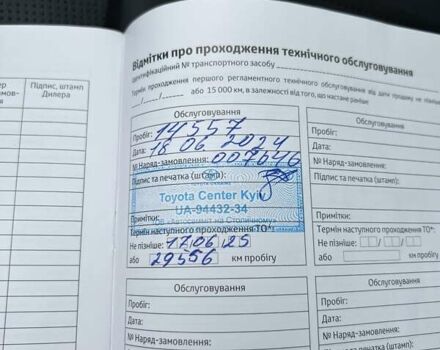 Підпис, штамп
Дилера
Відмітки про проходження технічного обслуговування
Ідентифікаційний № транспортного засобу
Термін проходження першого регламентного технічного обслуговування від дати продажу не
або 15 000 км, в залежності від того, що настане раніше
Обслуговування
Пробіг: 14557
Дата: 18 06 2024
№ Наряд-замовлення: 007646
Підпис та печатка (штамп):
Toyota Center Kyiv
UA-94432-34
Примітки:
Термін наступного проходження ТО*:
Не пізніше: 17.06.25
або 29556 км пробігу
Обслуговування
Пробіг:
Дата:
№ Наряд-замовлення:
Підпис та печатка (штамп):
Примітки:
Термін наступного проходження
Не пізніше:
або км пробігу
Обслуговування
Пробіг:
Дата:
№ Наряд-замовлення:
Обслуговування
Пробіг:
Дата:
№ Наряд-замовлення: